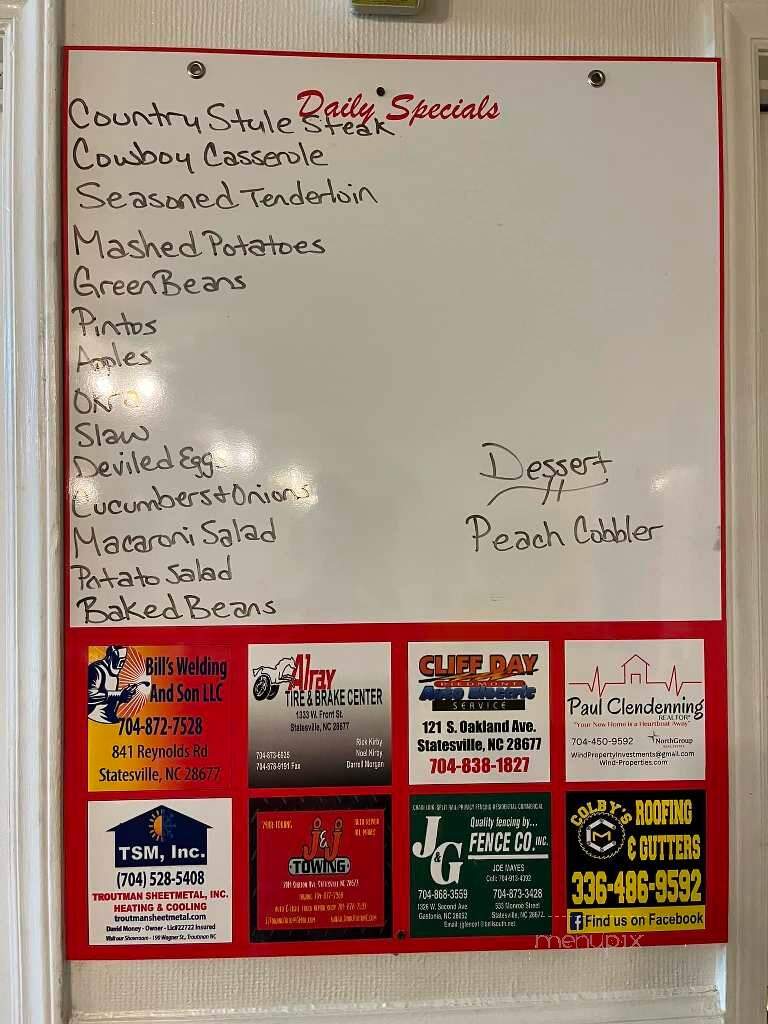 Daily Specials
Country Style Steak
Cowboy Casserole
Seasoned Tenderloin
Mashed Potatoes
Green Beans
Pintos
Apples
Okra
Slaw
Deviled Eggs
Cucumbers + Onions
Macaroni Salad
Potato Salad
Baked Beans
Dessert
Peach Cobbler
Bill's Welding
And Son LLC
704-872-7528
841 Reynolds Rd
Statesville, NC 28677
Alray
TIRE & BRAKE CENTER
1333 W. Front St.
Statesville, NC 28677
Rick Kirby
Noel Kirby
Darrell Morgan
CLIFF DAY
PIEDMONT
Auto Electric
SERVICE
121 S. Oakland Ave.
Statesville, NC 28677
704-838-1827
Paul Clendenning
REALTOR®
"Your New Home is a Heartbeat Away"
704-450-9592
NorthGroup
WindPropertyInvestments@gmail.com
Wind-Properties.com
TSM, Inc.
(704) 528-5408
TROUTMAN SHEETMETAL, INC.
HEATING & COOLING
troutmansheetmetal.com
David Money - Owner - Lic#22722 Insured
J&J
TOWING
Quality fencing by...
J&G
FENCE CO. INC.
JOE MAYES
Cell: 704-913-4392
704-868-3559
704-873-3428
1326 W. Second Ave
Gastonia, NC 28052
533 Monroe Street
Statesville, NC 28677
COLBY'S
ROOFING
& GUTTERS
CM
336-486-9592
Find us on Facebook
menupix